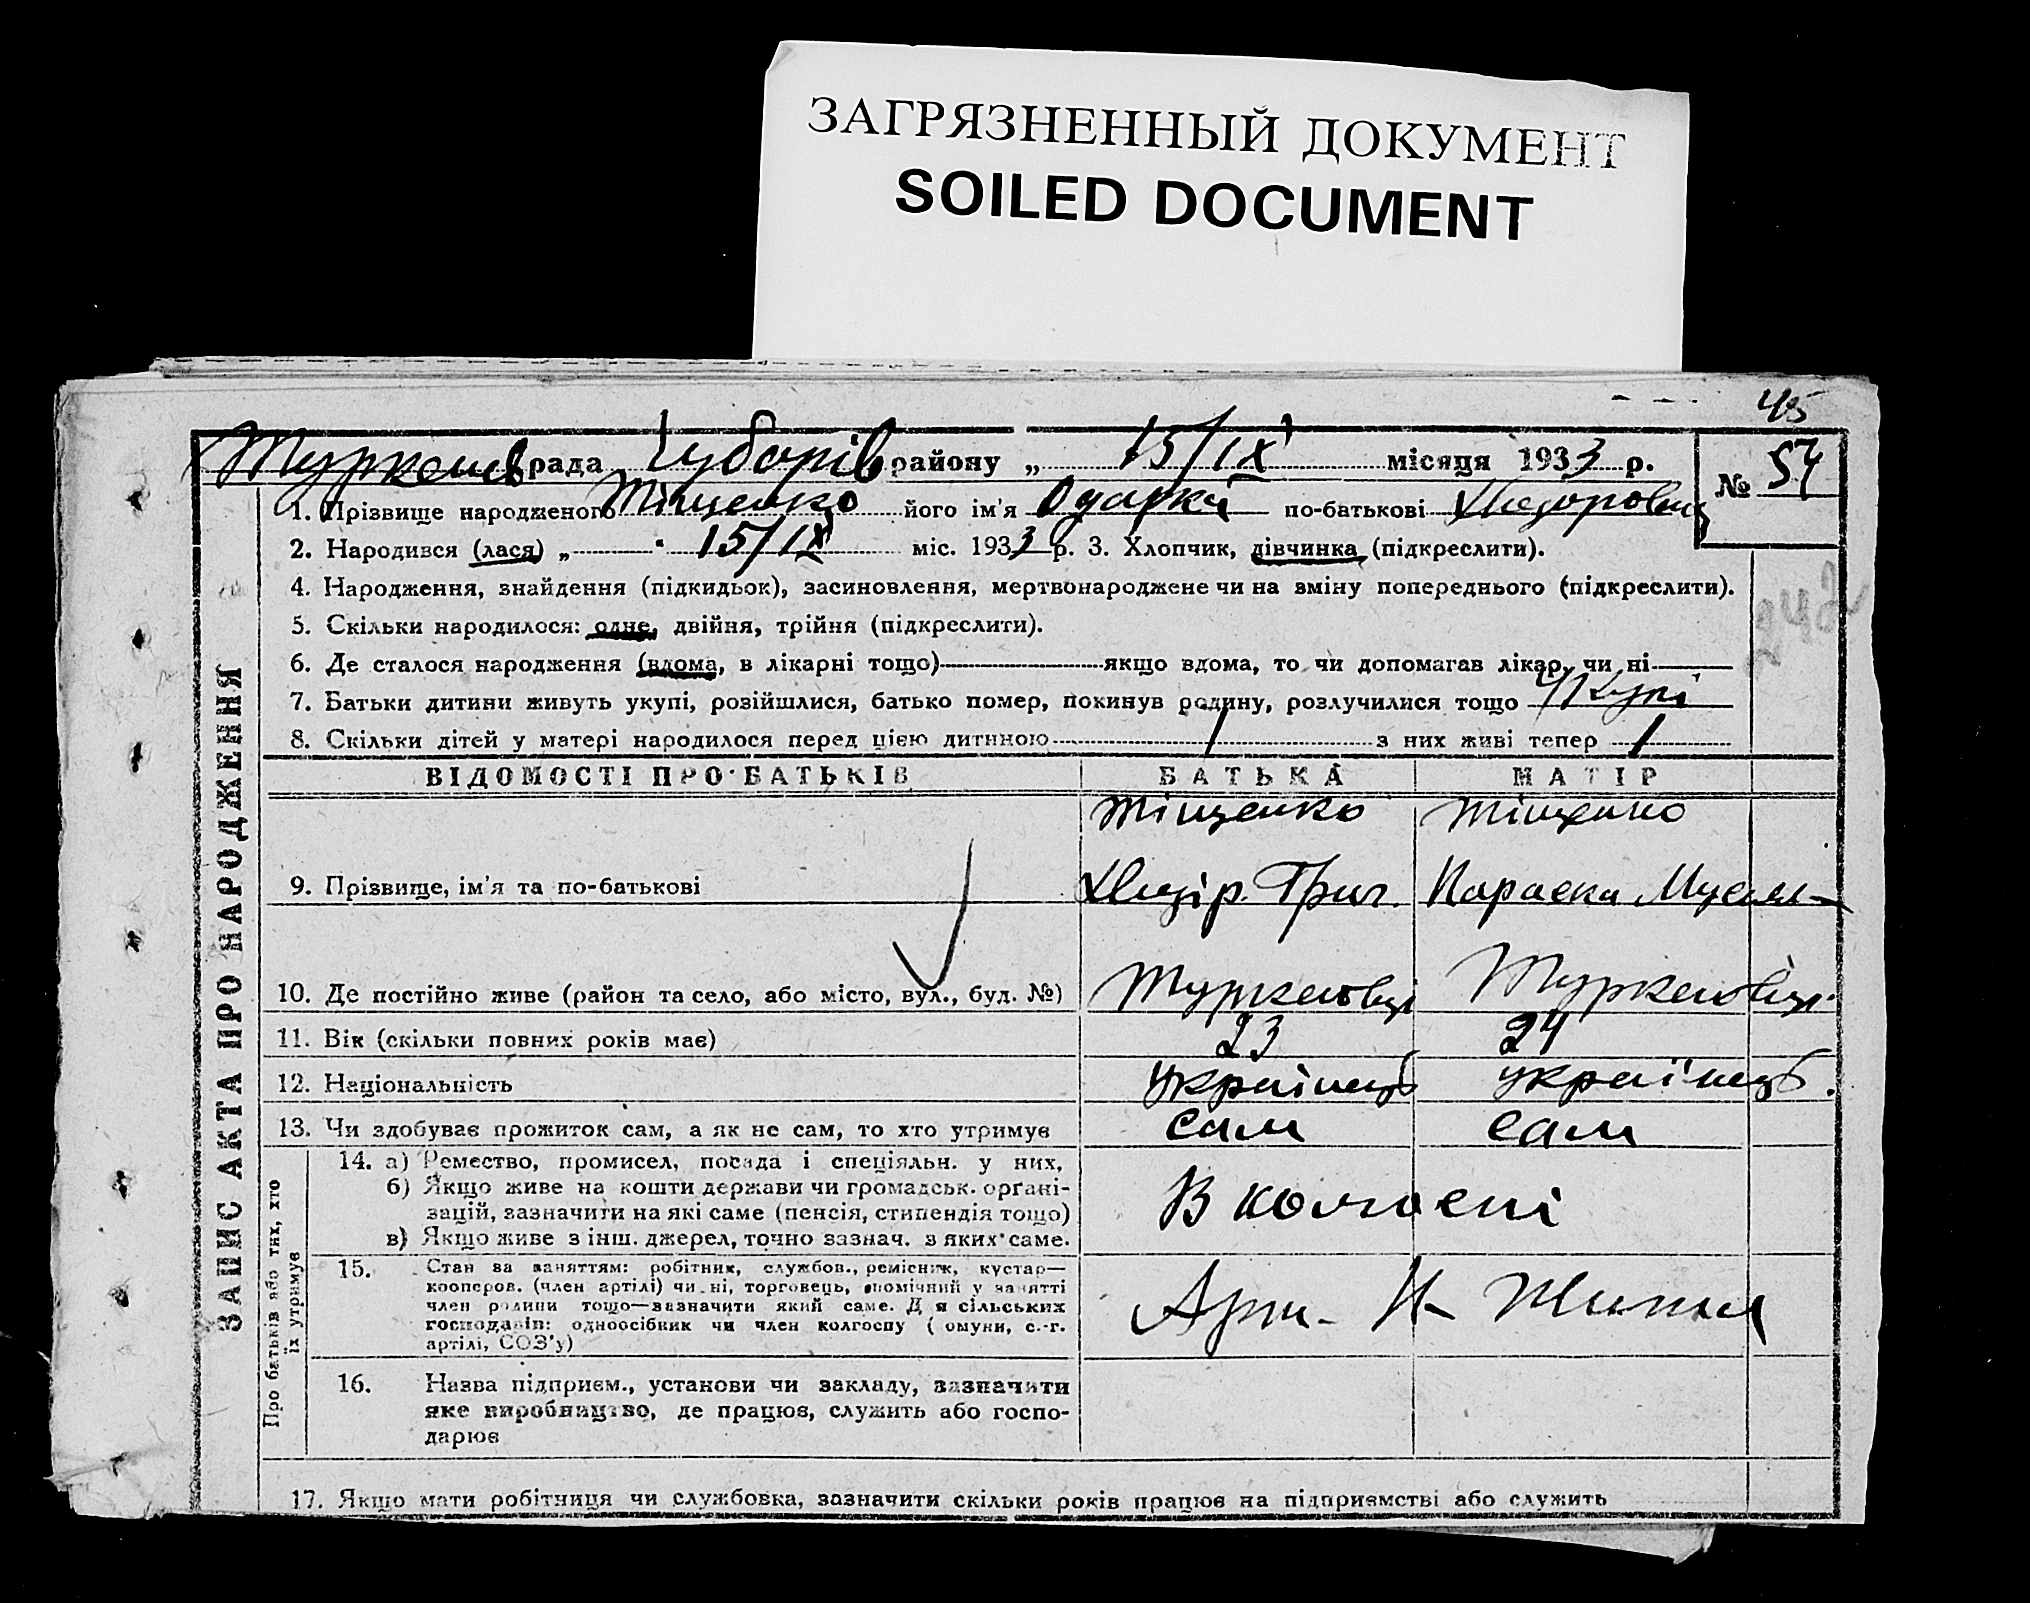 ЗАГРЯЗНЕННЫЙ ДОКУМЕНТ
SOILED DOCUMENT
45
Туркенів рада Чубарів району „ 15/IX місяця 1933 р.
№ 54
1. Прізвище народженого Тіщенко його ім'я Одарка по-батькові
2. Народився (лася) „ " 15/IX міс. 1933 р. 3. Хлопчик, дівчинка (підкреслити).
4. Народження, знайдення (підкидьок), засиновлення, мертвонароджене чи на зміну попереднього (підкреслити).
5. Скільки народилося: одне, двійня, трійня (підкреслити).
6. Де сталося народження (вдома, в лікарні тощо) якщо вдома, то чи допомагав лікар, чи ні
7. Батьки дитини живуть укупі, розійшлися, батько помер, покинув родину, розлучилися тощо Укупі
8. Скільки дітей у матері народилося перед цією дитиною 1 з них живі тепер 1
ЗАПИС АКТА ПРО НАРОДЖЕННЯ
ВІДОМОСТІ ПРО БАТЬКІВ БАТЬКА МАТІР
Тіщенко Тіщенко
9. Прізвище, ім'я та по-батькові Григ. Параска
10. Де постійно живе (район та село, або місто, вул., буд. №)
11. Вік (скільки повних років має) 23 24
12. Національність українець українець.
13. Чи здобуває прожиток сам, а як не сам, то хто утримує сам сам
Про батьків або тих, хто
їх утримує
14. а) Ремество, промисел, посада і спеціяльн. у них,
б) Якщо живе на кошти держави чи громадськ. органі-
зацій, зазначити на які саме (пенсія, стипендія тощо)
в) Якщо живе з інш. джерел, точно зазнач. з яких саме.
В колгоспі
15. Стан за заняттям: робітник, службов., ремісник, кустар—
кооперов. (член артілі) чи ні, торговець, помічний у занятті
член родини тощо—зазначити який саме. Для сільських
господарів: одноосібник чи член колгоспу (комуни, с.-г.
артілі, СОЗ'у)
16. Назва підприєм., установи чи закладу, зазначити
яке виробництво, де працює, служить або госпо-
дарює
17. Якщо мати робітниця чи службовка, зазначити скільки років працює на підприємстві або служить